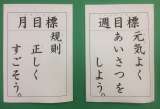 月目標
規則
正しく
すごそう。
週目標
元気よく
あいさつを
しよう。